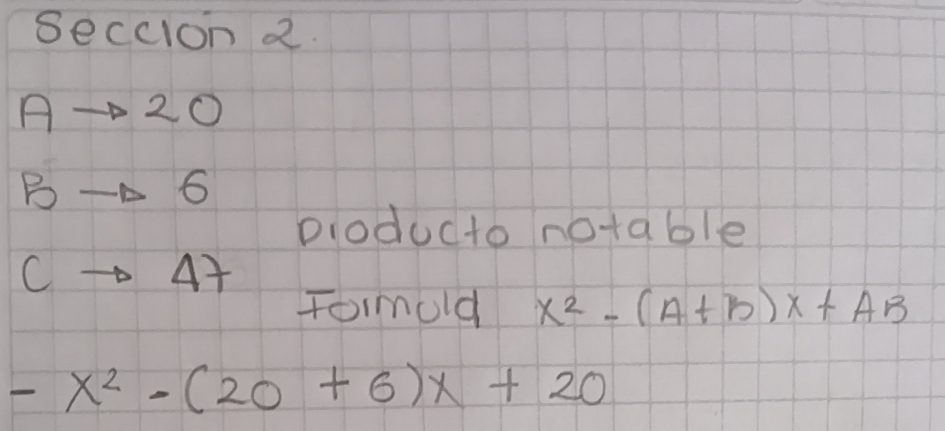 Sección 2.
A → 20
B → 6
producto notable
C → 47
Formula x² - (A+B)x + AB
- x² - (20 + 6)x + 20